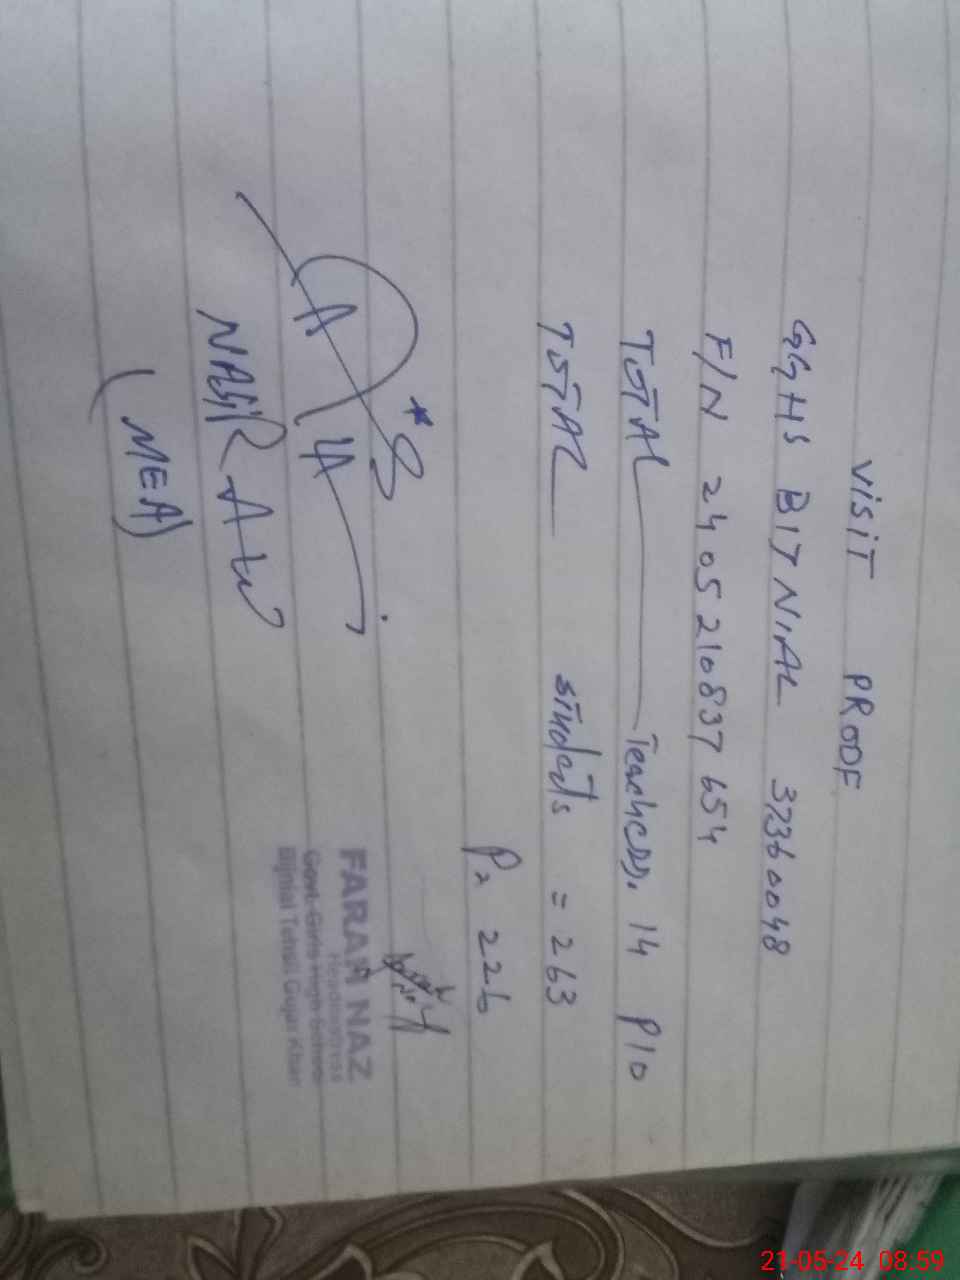 VISIT PROOF
GGHS BIJNIAL 37360048
F/N 2405210837654
TOTAL — Teachers. 14 P10
TOTAL — Students = 263
P= 226
NASIR ALI
(MEA)
FARAH NAZ
Headmistress
Govt. Girls High School
Bijnial Tehsil Gujar Khan
21-05-24 08:59